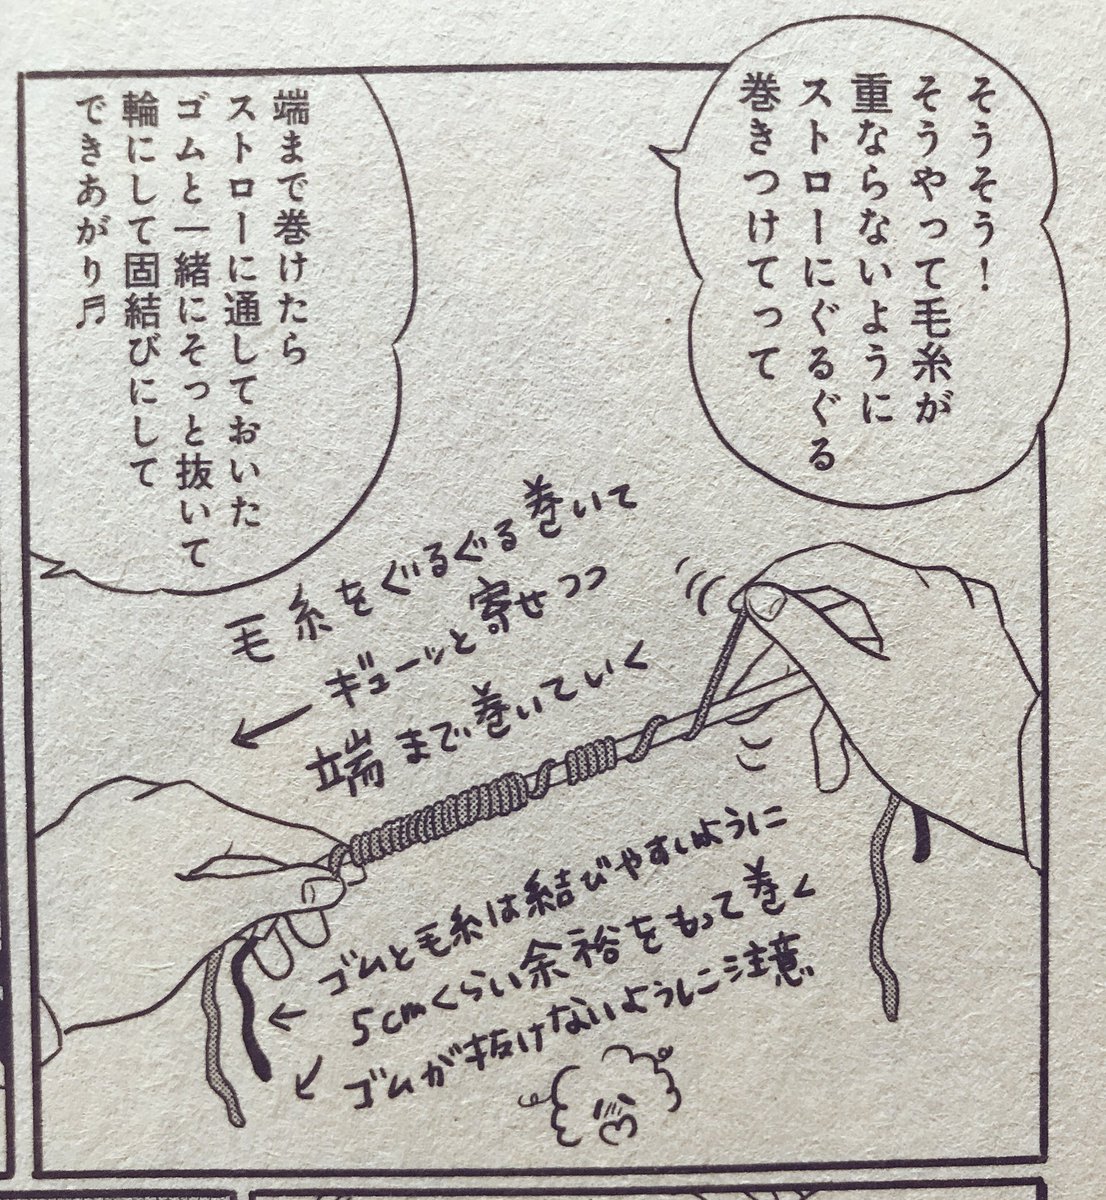 そうそう!
そうやって毛糸が
重ならないように
ストローにぐるぐる
巻きつけてって
端まで巻けたら
ストローに通しておいた
ゴムと一緒にそっと抜いて
輪にして固結びにして
できあがり♬
毛糸をぐるぐる巻いて
ギューッと寄せつつ
端まで巻いていく
ゴムと毛糸は結びやすいように
5cmくらい余裕をもって巻く
ゴムが抜けないように注意